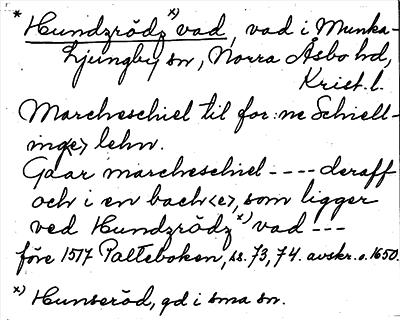 * Hundzrödz x) vad, vad i Munka-
Ljungby sn, Norra Åsbo hd,
Krist. l.
Marcheschiel til for:ne Schiell-
ing<e> lehn.
Gaar marcheschiel ---- deraff
och i en bach<e>, som ligger
ved Hundzrödz x) vad ---
före 1517 Palteboken, ss. 73, 74. avskr. o. 1650.
x) Hunseröd, gd i sma sn.